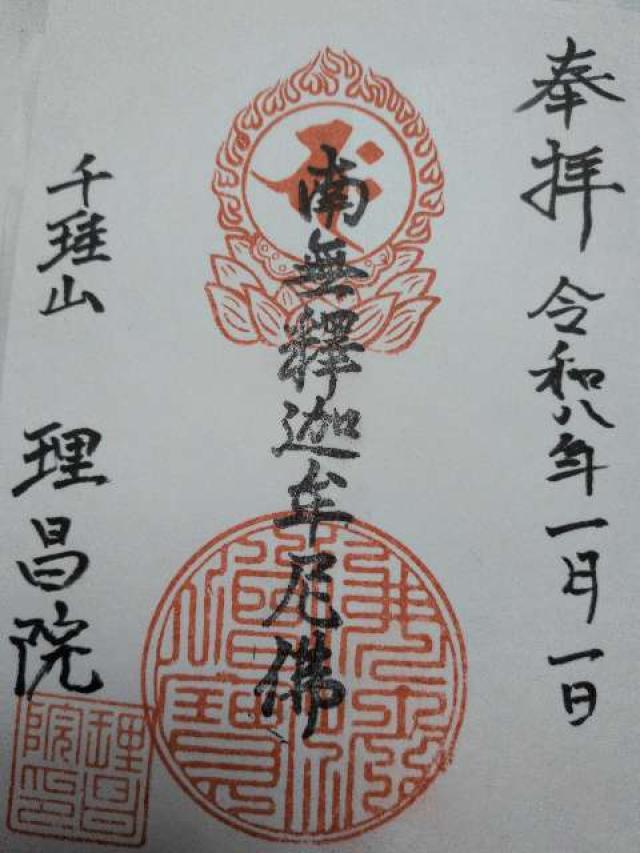 奉拝
令和八年一月一日
南無釋迦牟尼佛
千珪山
理昌院
理昌院印